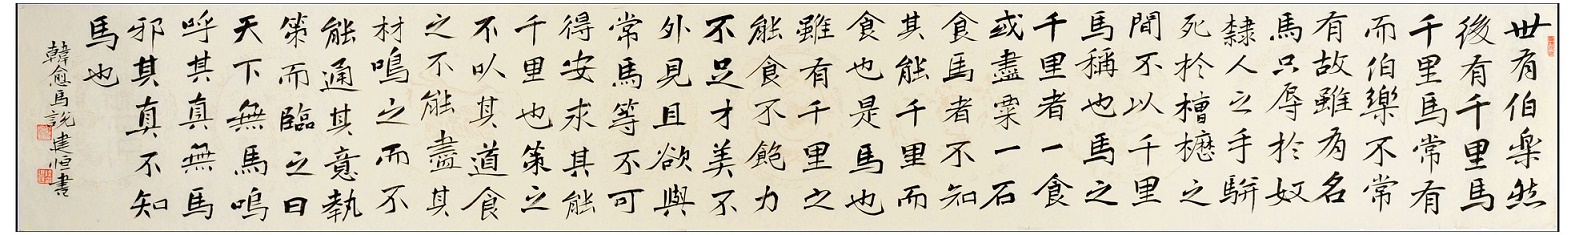 世有伯樂然
後有千里馬
千里馬常有
而伯樂不常
有故雖有名
馬只辱於奴
隸人之手駢
死於槽櫪之
間不以千里
馬稱也馬之
千里者一食
或盡粟一石
食馬者不知
其能千里而
食也是馬也
雖有千里之
能食不飽力
不足才美不
外見且欲與
常馬等不可
得安求其能
千里也策之
不以其道食
之不能盡其
材鳴之而不
能通其意執
策而臨之曰
天下無馬嗚
呼其真無馬
邪其真不知
馬也
韓愈馬說建恒書